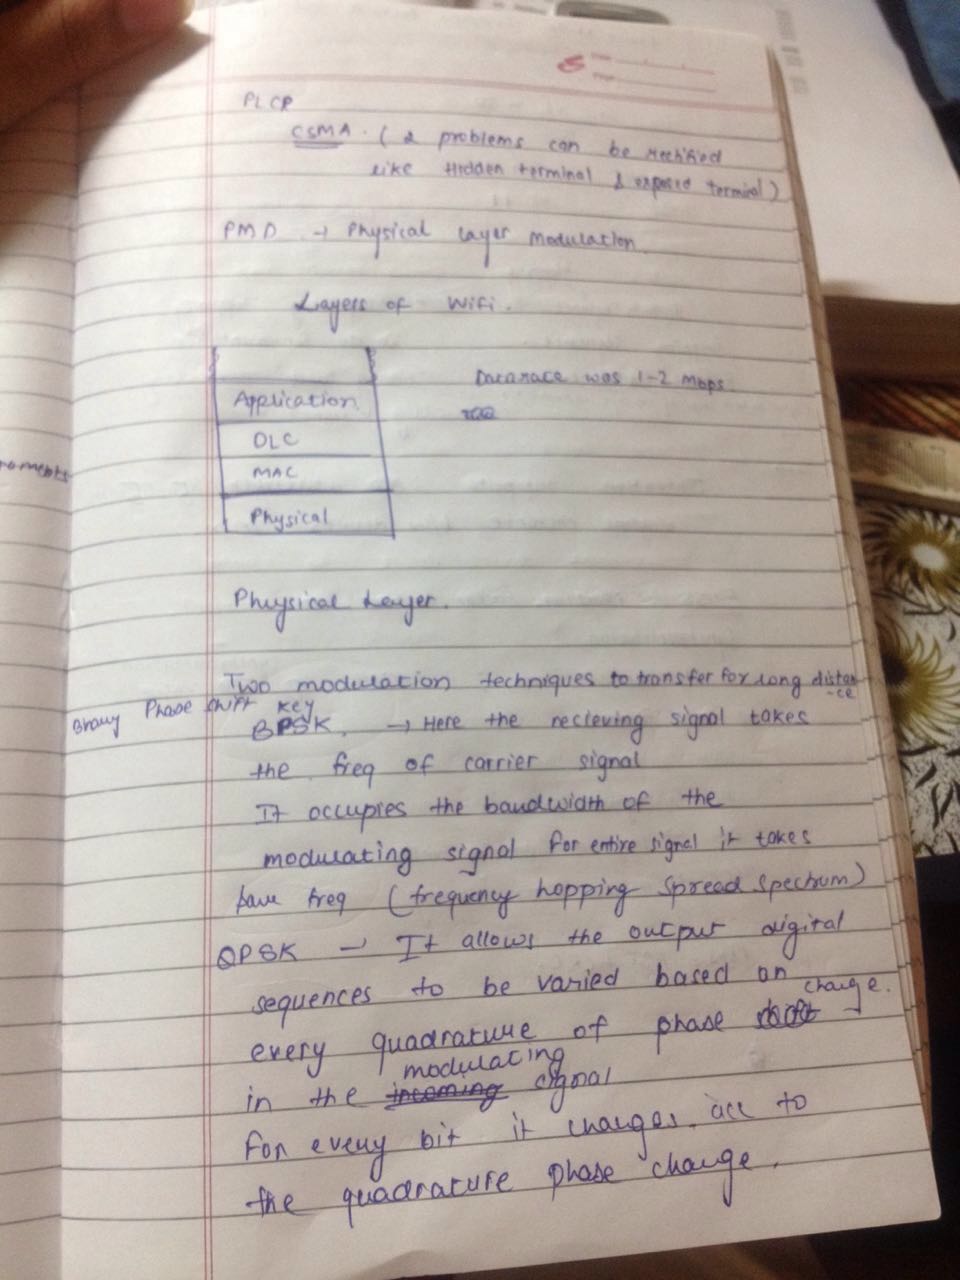 Date
Page
PLCP
CSMA. ( 2 problems can be rectified
like Hidden terminal & exposed terminal)
PMD → Physical Layer Modulation
Layers of Wifi.
Application
DLC
MAC
Physical
Datarate was 1-2 Mbps
roments
Physical Layer.
Two modulation techniques to transfer for long distan
-ce
Binary Phase shift key
BPSK. → Here the recieving signal takes
the freq of carrier signal
It occupies the bandwidth of the
modulating signal for entire signal it takes
freq (frequency hopping spread spectrum)
QPSK → It allows the output digital
sequences to be varied based on
every quadrature of phase change.
in the modulating signal
For every bit it changes acc to
the quadrature phase change.